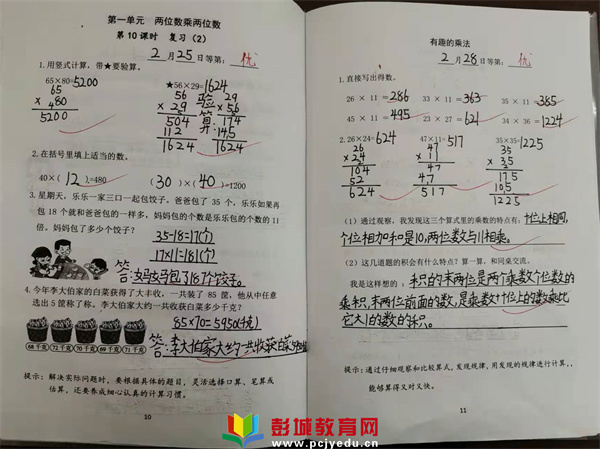 第一单元 两位数乘两位数
第10课时 复习(2)
2月25日等第: 优
1.用竖式计算,带★要验算。
65×80=5200 ★56×29=1624
65 56 验 29
× 80 × 29 算: × 56
5200 504 174
112 145
1624 1624
2.在括号里填上适当的数。
40×(12)=480 (30)×(40)=1200
3.星期天,乐乐一家三口一起包饺子,爸爸包了 35 个,乐乐如果再
包 18 个就和爸爸包的一样多,妈妈包的个数是乐乐包的个数的 11
倍。妈妈包了多少个饺子?
35-18=17(个)
17×11=181(个)
答:妈妈包了187个饺子。
4.今年李大伯家的白菜获得了大丰收,一共装了 85 筐,他从中任意
选出 5 筐称了称。李大伯家大约一共收获白菜多少千克?
85×70=5950(千克)
答:李大伯家大约一共收获白菜5950
68 千克 72 千克 70 千克 69 千克 71 千克
提示:解决实际问题时,要根据具体的题目,灵活选择口算、笔算或
估算,还要养成细心认真的计算习惯。
10
有趣的乘法
2月28日等第: 优
1.直接写出得数。
26 × 11 =286 33 × 11 =363 35 × 11 =385
45 × 11 =495 23 × 27 =621 34 × 36 =1224
2.26×24=624 47×11=517 35×35=1225
26 47 35
× 24 × 11 × 35
104 47 175
52 47 105
624 517 1225
(1)通过观察,我发现这三个算式里的乘数的特点有:十位上相同,
个位相加和是10,两位数与11相乘。
(2)这几道题的积会有什么特点?算一算,和同桌交流。
我是这样想的:积的末两位是两个乘数个位数的
乘积,末两位前面的数,是乘数十位上的数乘比
它大1的数的积。
提示:通过仔细观察和比较算式,发现规律,用发现的规律进行计算,
能够算得又对又快。
11
彭城教育网
www.pcjyedu.cn